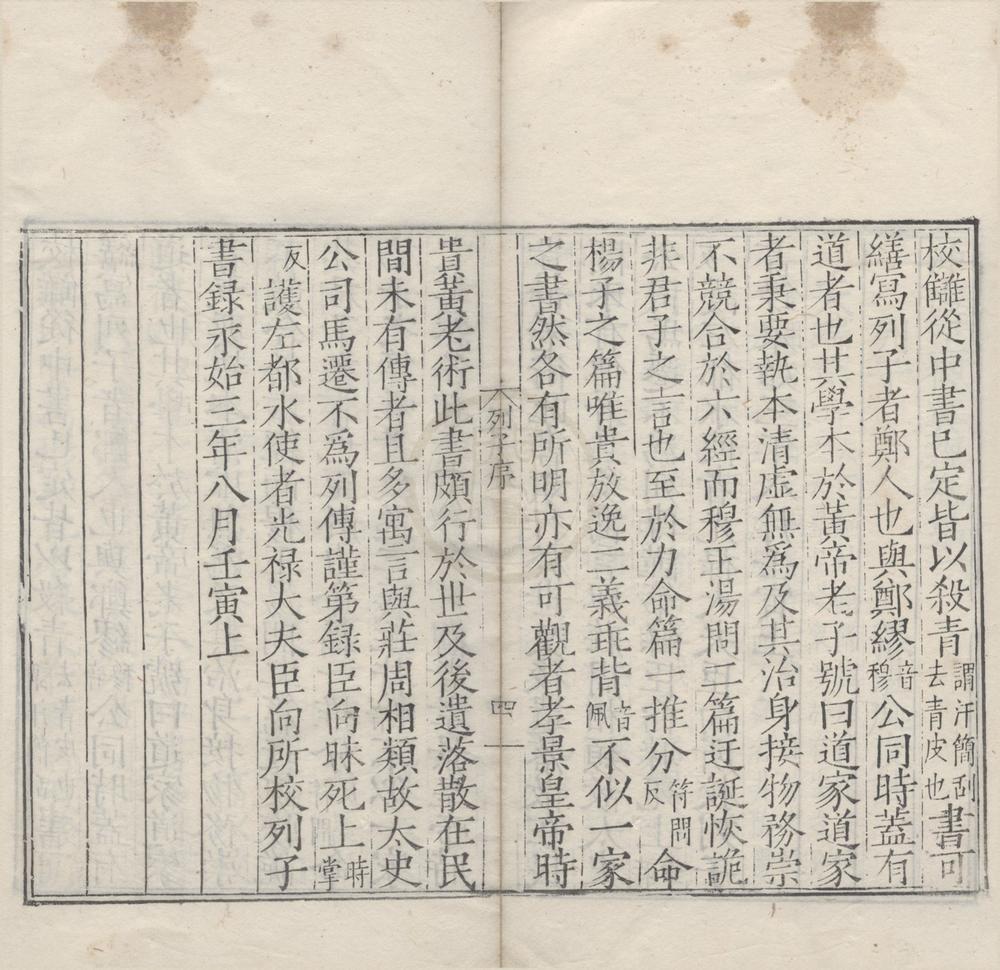 校讎從中書已定皆以殺青謂汗簡刮去青皮也書可
繕寫列子者鄭人也與鄭繆音穆公同時蓋有
道者也其學本於黃帝老子號曰道家道家
者秉要執本清虛無爲及其治身接物務崇
不競合於六經而穆王湯問二篇迂誕恢詭
非君子之言也至於力命篇一推分符問反命
楊子之篇唯貴放逸二義乖背音佩不似一家
之書然各有所明亦有可觀者孝景皇帝時
列子序
四
貴黃老術此書頗行於世及後遺落散在民
間未有傳者且多寓言與莊周相類故太史
公司馬遷不爲列傳謹第録臣向昧死上時掌
反護左都水使者光禄大夫臣向所校列子
書録永始三年八月壬寅上